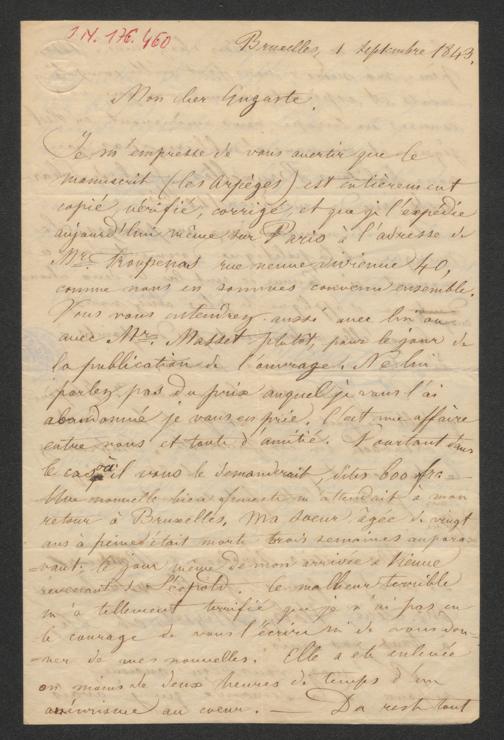 J.N. 176.460
Bruxelles, 1 Septembre 1843.
Mon cher Auguste.
Je m'empresse de vous avertir que le
manuscrit (les Arpèges) est entièrement
copié, vérifié, corrigé, et que je l'expédie
aujourd'hui même sur Paris à l'adresse de
Mr. Troupenas rue neuve vivienne 40,
comme nous en sommes convenu ensemble.
Vous vous entendrez aussi avec lui ou
avec Mr. Masset plutôt, pour le jour de
la publication de l'ouvrage. Ne lui
parlez pas du prix auquel je vous l'ai
abandonné je vous en prie. C'est une affaire
entre nous et toute d'amitié. Pourtant dans
le cas où il vous le demanderait, dites 600 frs.
Une nouvelle bien funeste m'attendait a mon
retour à Bruxelles. Ma soeur agée de vingt
ans à peine était morte trois semaines aupara-
-vant: le jour même de mon arrivée à Vienne
revenant de Léopold. Ce malheur terrible
m'a tellement terrifié que je n'ai pas eu
le courage de vous l'écrire ni de vous don-
-ner de mes nouvelles. Elle a été enlevée
en moins de deux heures de temps d'un
anévrisme au coeur. — Du reste tout